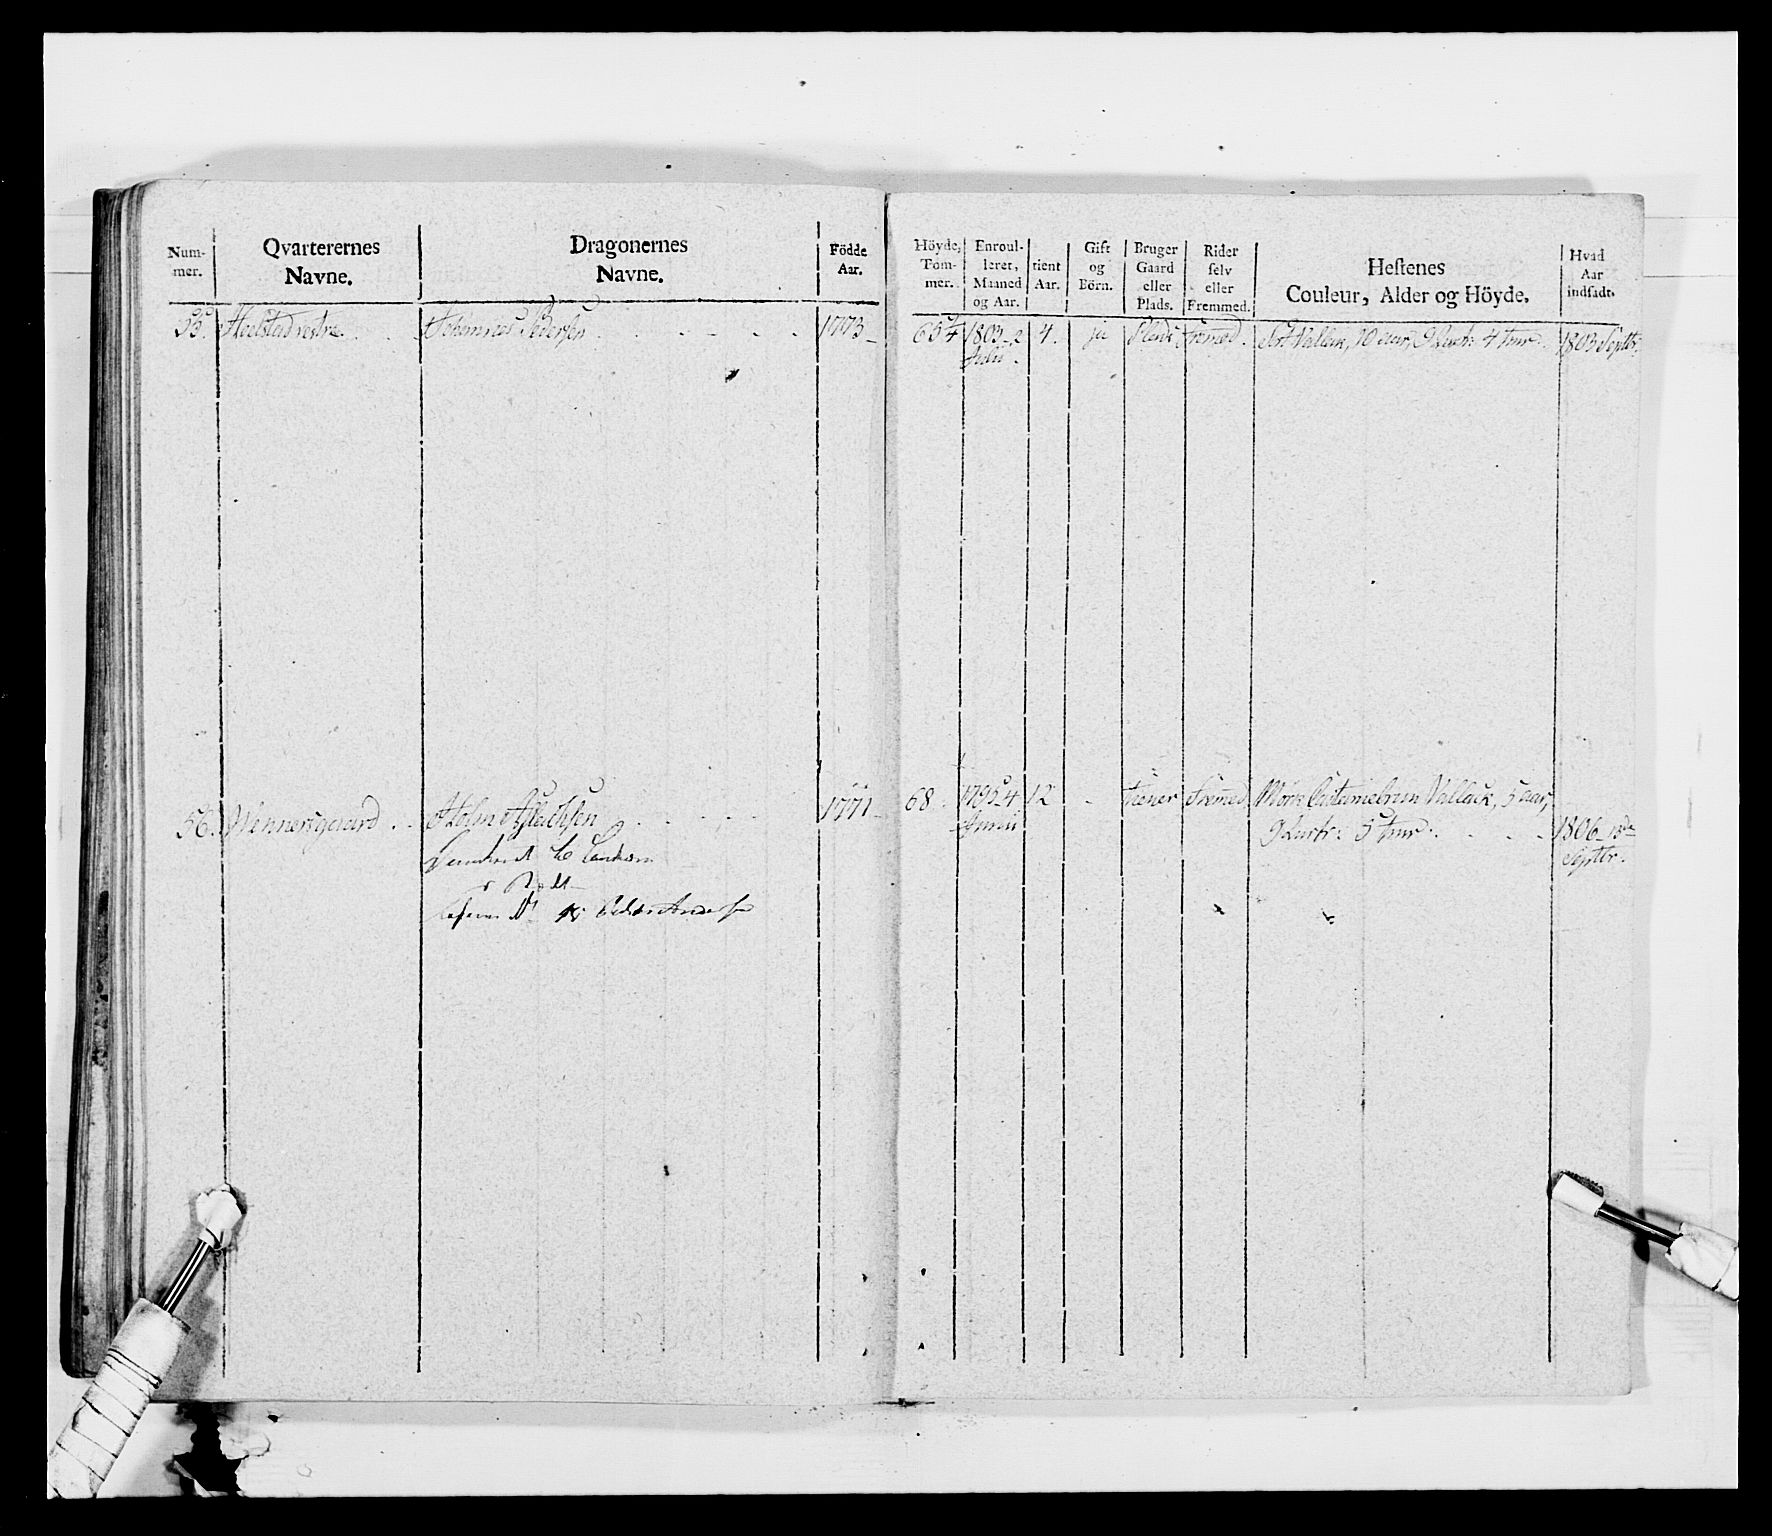 Num-
mer.
Qvarterernes
Navne.
Dragonernes
Navne.
Födde
Aar.
Höyde,
Tom-
mer.
Enroul-
leret,
Maaned
og Aar.
tient
Aar.
Gift
og
Börn.
Bruger
Gaard
eller
Plads.
Rider
selv
eller
Fremmed.
Hestenes
Couleur, Alder og Höyde.
Hvad
Aar
indsadt.
55. Heelstad vestre Johannes Pedersen 1773 65¼ 1803 2 4. ja Plads Fremed. Sort Vallak, 10 aar, 9 Quart: 4 tom: 1803 Septbr:
Julii.
56. Wennersgaard Holm Aslachsen 1771 68 1795 4 12 - tiener Fremed Mörk Castaniebrun Vallack, 5 aar,
Junii 9 Quart: 5 tom: 1806 13de
Septbr.